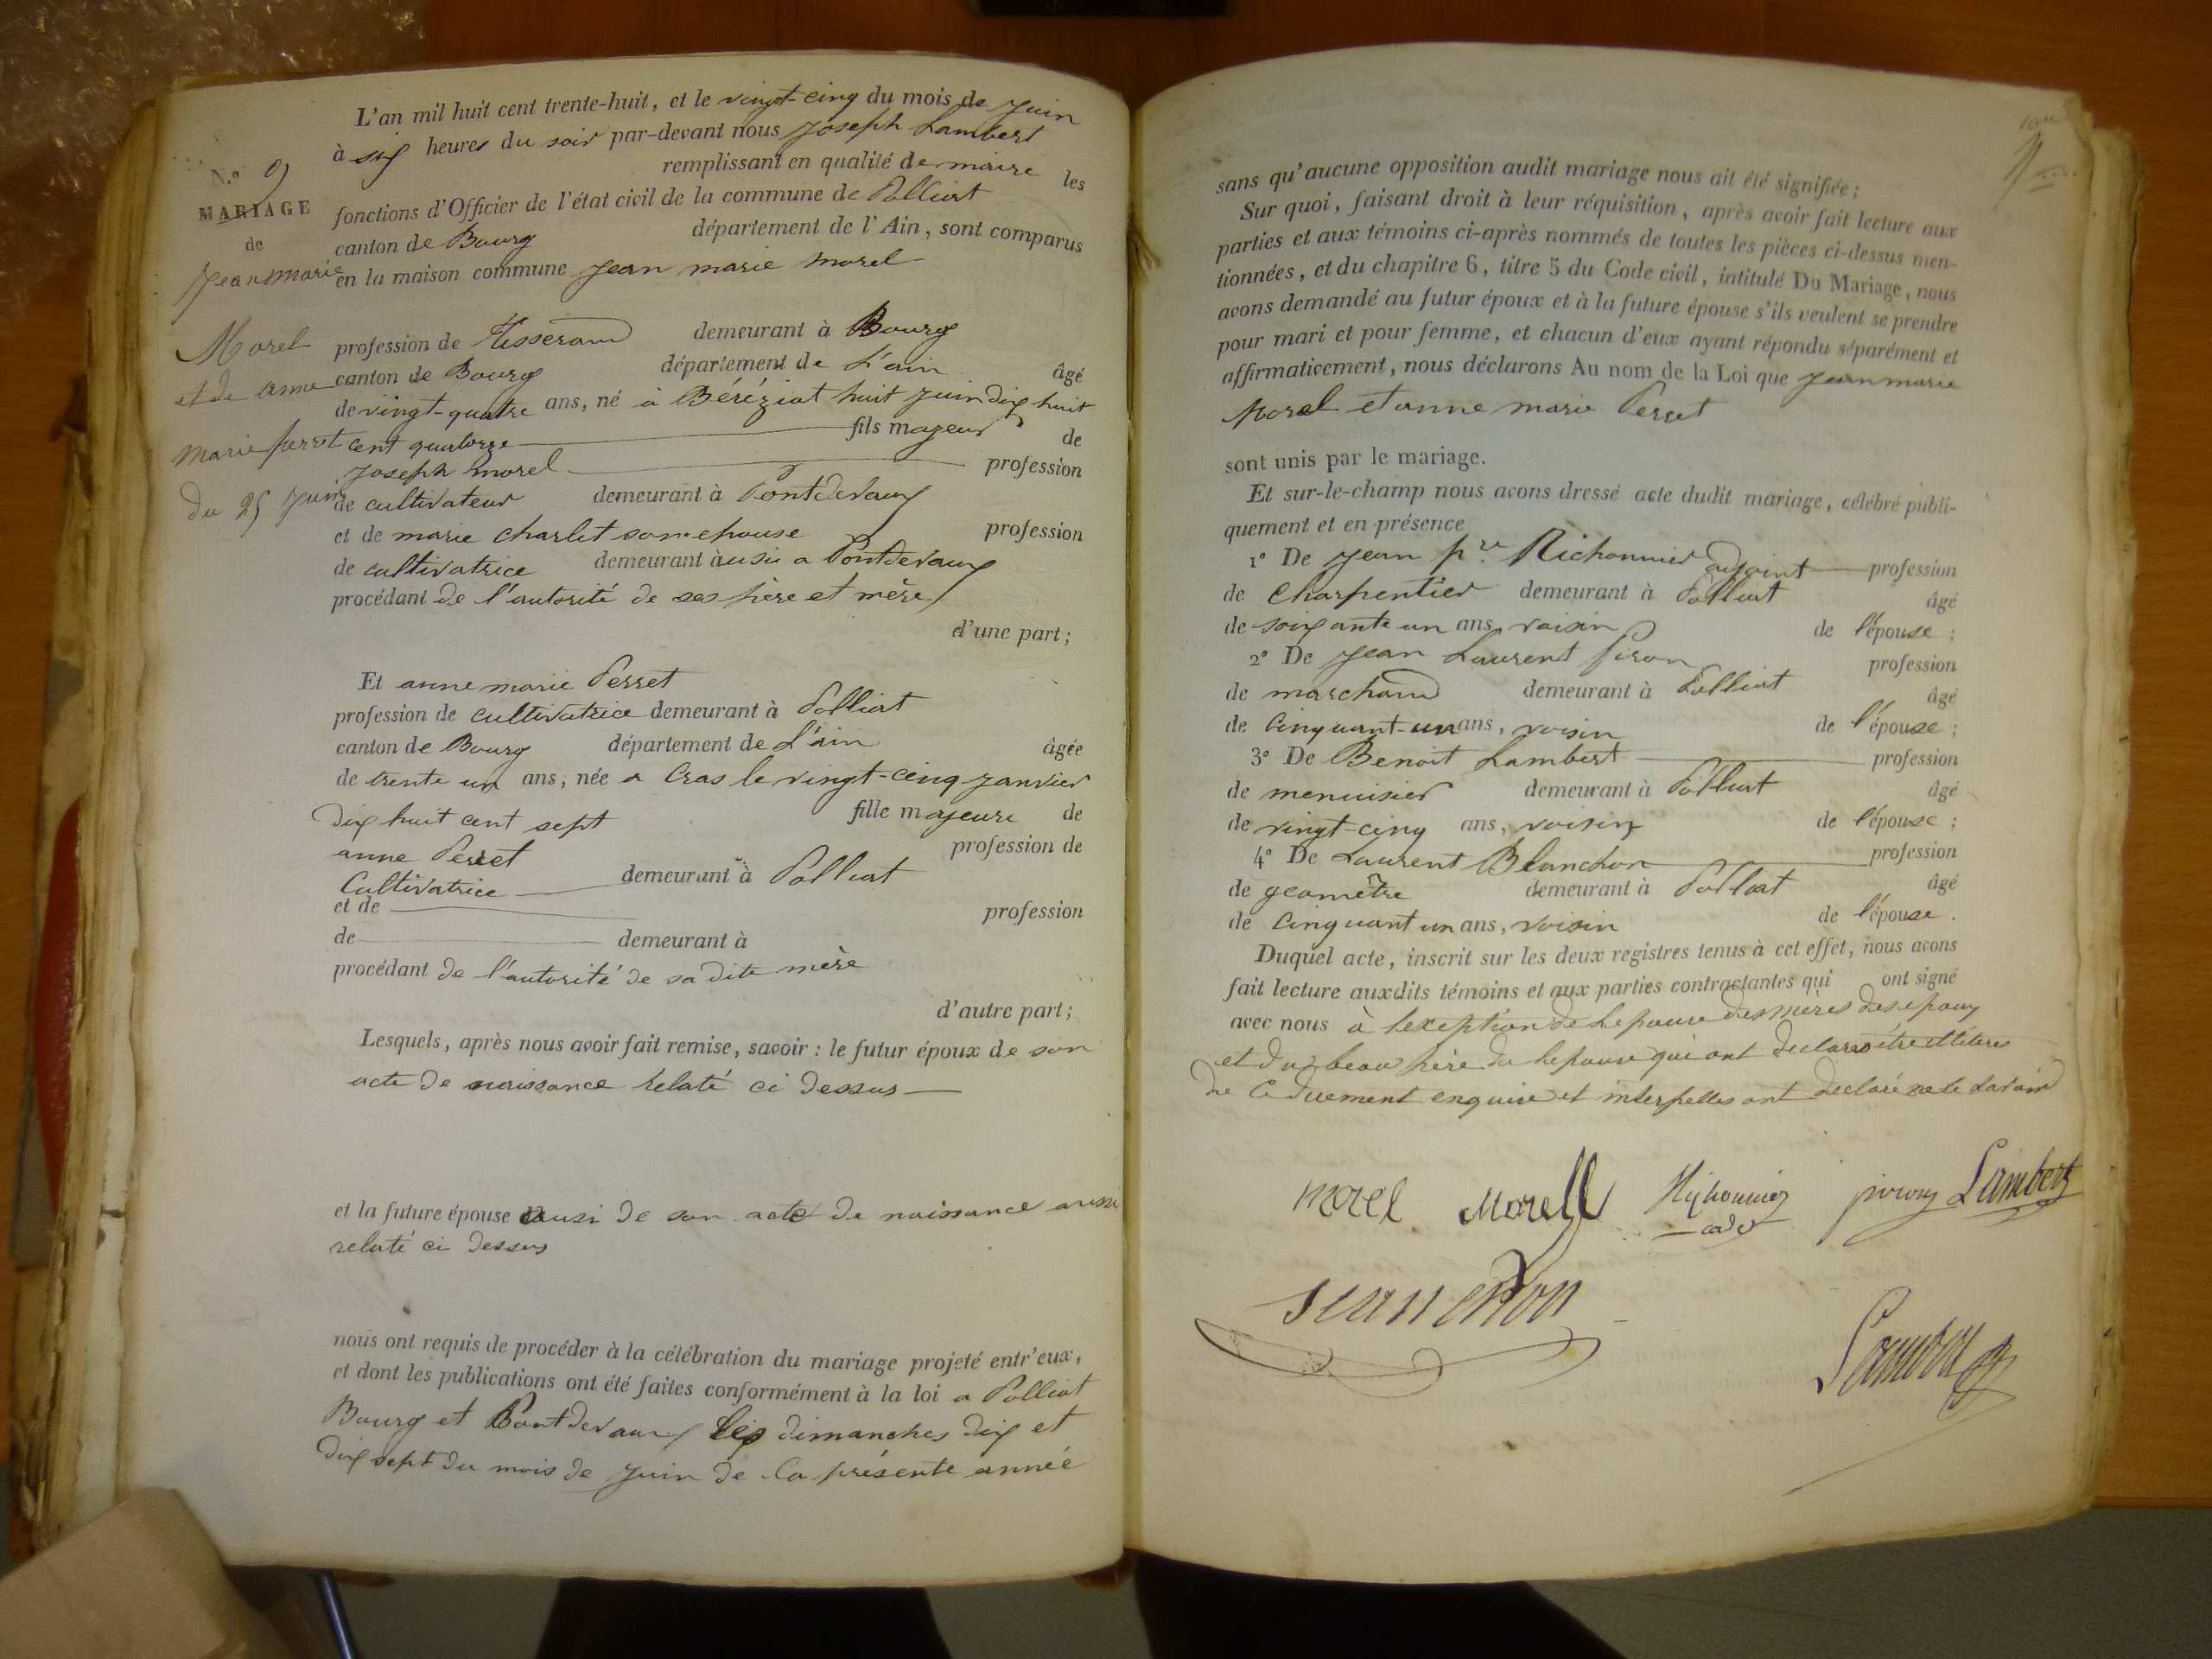 L'an mil huit cent trente-huit, et le vingt-cinq du mois de juin
à six heures du soir par-devant nous Joseph Lambert
remplissant en qualité de maire les
fonctions d'Officier de l'état civil de la commune de Polliat
canton de Bourg département de l'Ain, sont comparus
en la maison commune jean marie morel
N.o 9
MARIAGE
de
jean marie
Morel
et de anne
marie perret
du 25 juin
profession de tisserand demeurant à Bourg
canton de Bourg département de L'ain âgé
de vingt-quatre ans, né à Béréziat huit juin dix huit
cent quatorze fils majeur de
joseph morel profession
de cultivateur demeurant à Pontdevaux
et de marie charlet son epouse profession
de cultivatrice demeurant à ausi a Pontdevaux
procédant de l'autorité de ses père et mère
d'une part;
Et anne marie Perret
profession de cultivatrice demeurant à Polliat
canton de Bourg département de L'ain âgée
de trente un ans, née a Cras le vingt-cinq janvier
dix huit cent sept fille majeure de
anne Perret profession de
Cultivatrice demeurant à Polliat
et de profession
de demeurant à
procédant de l'autorité de sa dite mère
d'autre part;
Lesquels, après nous avoir fait remise, savoir: le futur époux de son
acte de naissance relaté ci dessus
et la future épouse ausi de son acte de naissance aussi
relaté ci dessus
nous ont requis de procéder à la célébration du mariage projeté entr'eux,
et dont les publications ont été faites conformément à la loi a Polliat
Bourg et Pontdevaux les dimanches dix et
dix sept du mois de juin de la présente année
sans qu'aucune opposition audit mariage nous ait été signifiée;
Sur quoi, faisant droit à leur réquisition, après avoir fait lecture aux
parties et aux témoins ci-après nommés de toutes les pièces ci-dessus men-
tionnées, et du chapitre 6, titre 5 du Code civil, intitulé Du Mariage, nous
avons demandé au futur époux et à la future épouse s'ils veulent se prendre
pour mari et pour femme, et chacun d'eux ayant répondu séparément et
affirmativement, nous déclarons Au nom de la Loi que jean marie
Morel et anne marie Perret
sont unis par le mariage.
Et sur-le-champ nous avons dressé acte dudit mariage, célébré publi-
quement et en présence
1o De jean p.re Richonnier adjoint profession
de charpentier demeurant à Polliat âgé
de soixante un ans voisin de l'épouse;
2o De jean Laurent piron profession
de marchand demeurant à Polliat âgé
de cinquant-un ans, voisin de l'épouse;
3o De Benoit Lambert profession
de menuisier demeurant à Polliat âgé
de vingt-cinq ans, voisin de l'épouse;
4o De Laurent Blanchon profession
de geomètre demeurant à Polliat âgé
de cinquant un ans, voisin de l'épouse.
Duquel acte, inscrit sur les deux registres tenus à cet effet, nous avons
fait lecture auxdits témoins et aux parties contractantes qui ont signé
avec nous à lexeption de lepouse des mères des epoux
et du beau père de lepouse qui ont declaré être illiteres
de ce duement enquire et interpelles ont declaré ne le savoir
morel Morell Richonnier
cadet
piron Lambert
Lambert